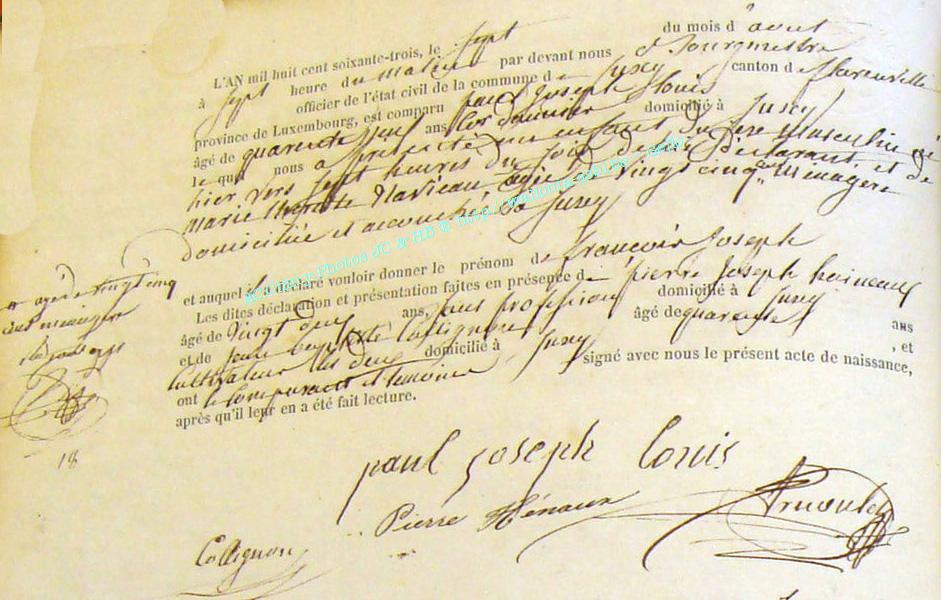 L'AN mil huit cent soixante-trois, le sept du mois d'août
à sept heure du matin par devant nous Bourgmestre
officier de l'état civil de la commune de Jusey canton de florenville
province de Luxembourg, est comparu paul Joseph Louis domicilié à Jusey
âgé de quarente neuf ans cordonnier
le quel nous a présenté un enfant du sexe masculin né
hier vers sept heures du soir de lui déclarant et de
marie Navieau agée de vingt cinq ans menagere
domiciliée et accouchée à Jusey
et auquel il a déclaré vouloir donner le prénom de françois Joseph
Les dites déclaration et présentation faites en présence de pierre Joseph
âgé de vingt deux ans, sans profession domicilié à Jusey
et de jean baptiste Collignon âgé de quarente ans
cultivateur domicilié à Jusey , et
ont le comparant et temoins signé avec nous le présent acte de naissance,
après qu'il leur en a été fait lecture.
agée de vingt cinq
ans menagere
18
paul Joseph Louis
Pierre Hénaux
Collignon